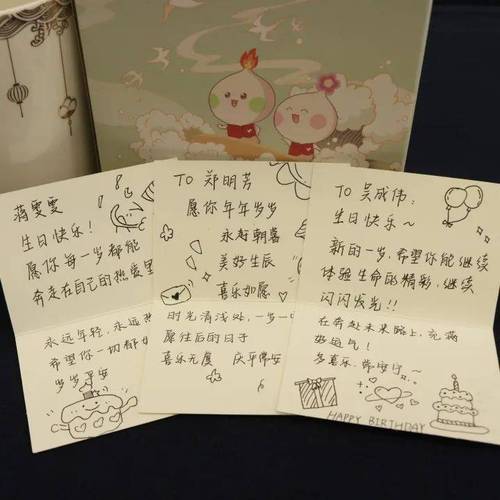 蒋雯雯
生日快乐!
愿你每一岁都能
奔走在自己的热爱里
永远年轻,永远
希望你一切都
岁岁平安
TO 郑明芳
愿你年年岁岁
永好朝喜
美好生辰
喜乐如愿
时光清浅处,一步一
愿往后的日子
喜乐无虞
TO 吴成伟:
生日快乐~
新的一岁,希望你能继续
体验生命的精彩,继续
闪闪发光!!
在奔赴未来路上,充满
好运气!
多喜乐,常安宁~
HAPPY BIRTHDAY